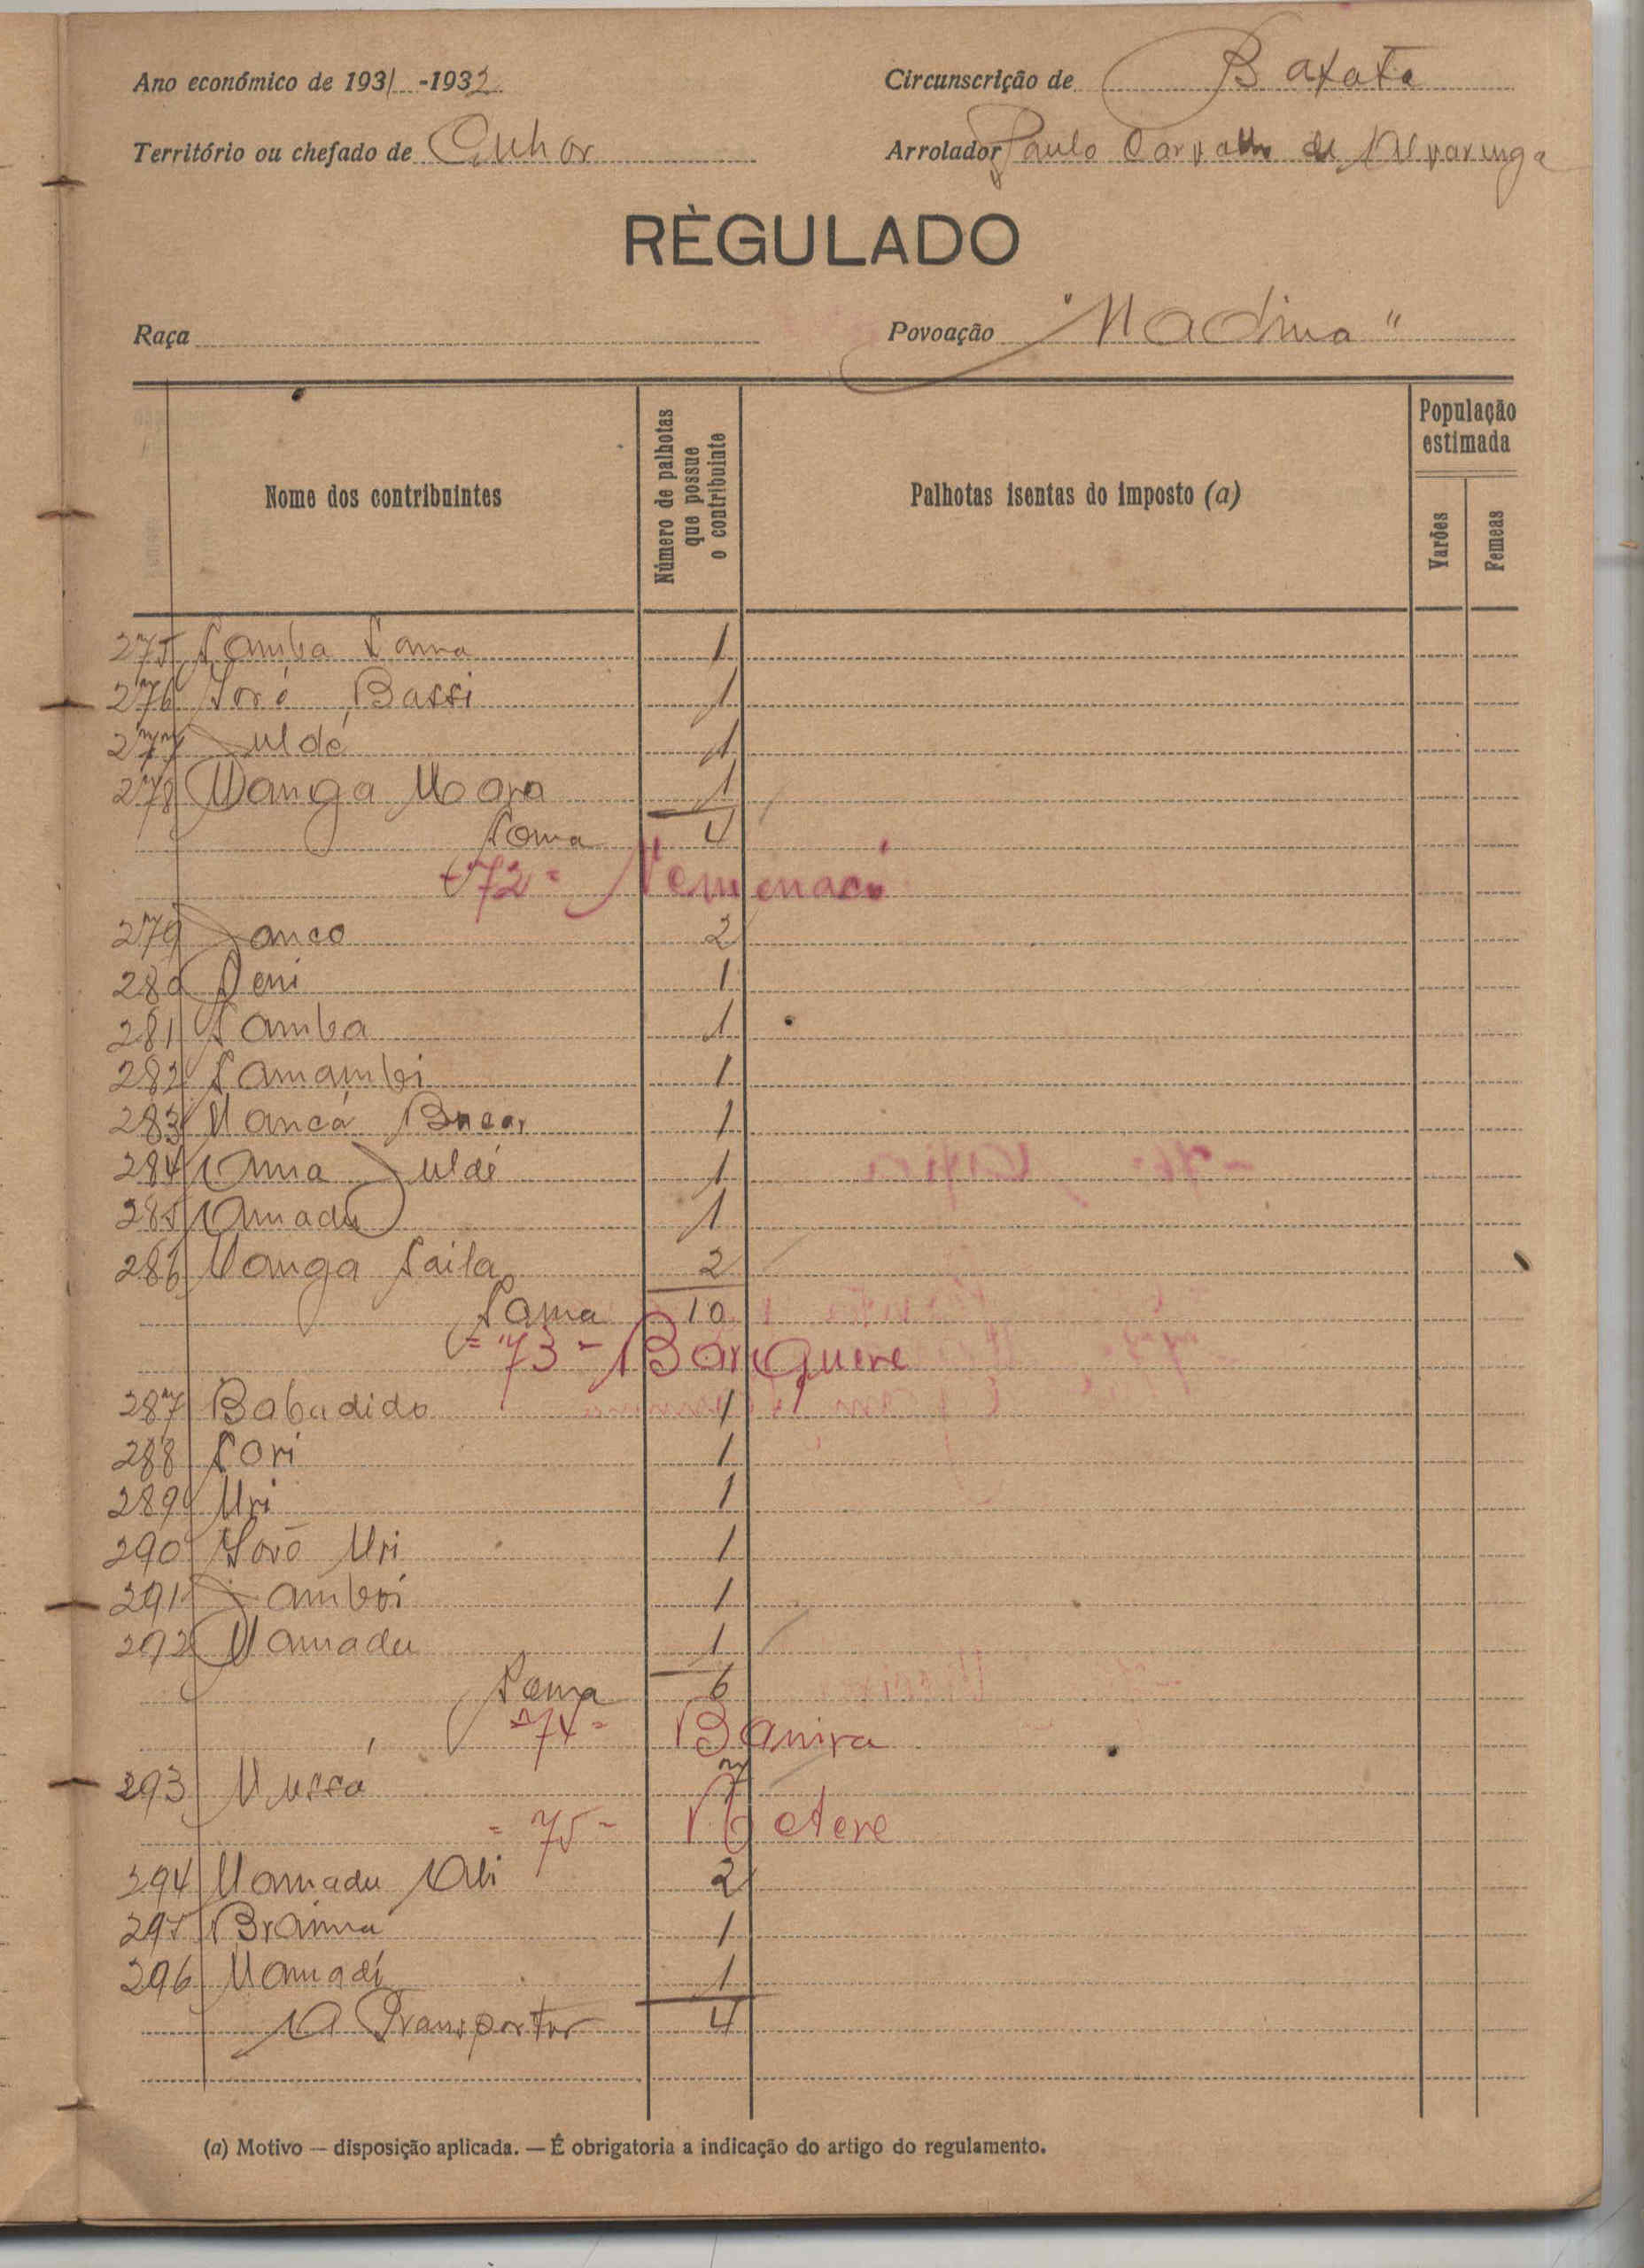 Ano económico de 1931-1932
Circunscrição de Bafatá
Território ou chefado de Cuhor
Arrolador Paulo Carvalho de Alvarenga
RÈGULADO
Raça
Povoação "Madina"
Nome dos contribuintes
Número de palhotas que possue o contribuinte
Palhotas isentas do imposto (a)
População estimada
Varões
Femeas
275 Samba Sanna 1
276 Soré Bassi 1
277 Juldé 1
278 Manga Mara 1
Soma 4
-72-
279 Janco 2
280 Seni 1
281 Samba 1
282 Samambi 1
283 Mancá Bacar 1
284 Anna Juldé 1
285 Amadu 1
286 Manga Saila 2
Soma 10
=73- Bariquere
287 Babadido 1
288 Sori 1
289 Uri 1
290 Soro Uri 1
291 Jamboi 1
292 Mamadu 1
Soma 6
=74= Banira
293 Mussá 7
=75-
294 Mamadu Ali 2
295 Braima 1
296 Mamadi 1
A Transportar 4
(a) Motivo — disposição aplicada. — É obrigatoria a indicação do artigo do regulamento.